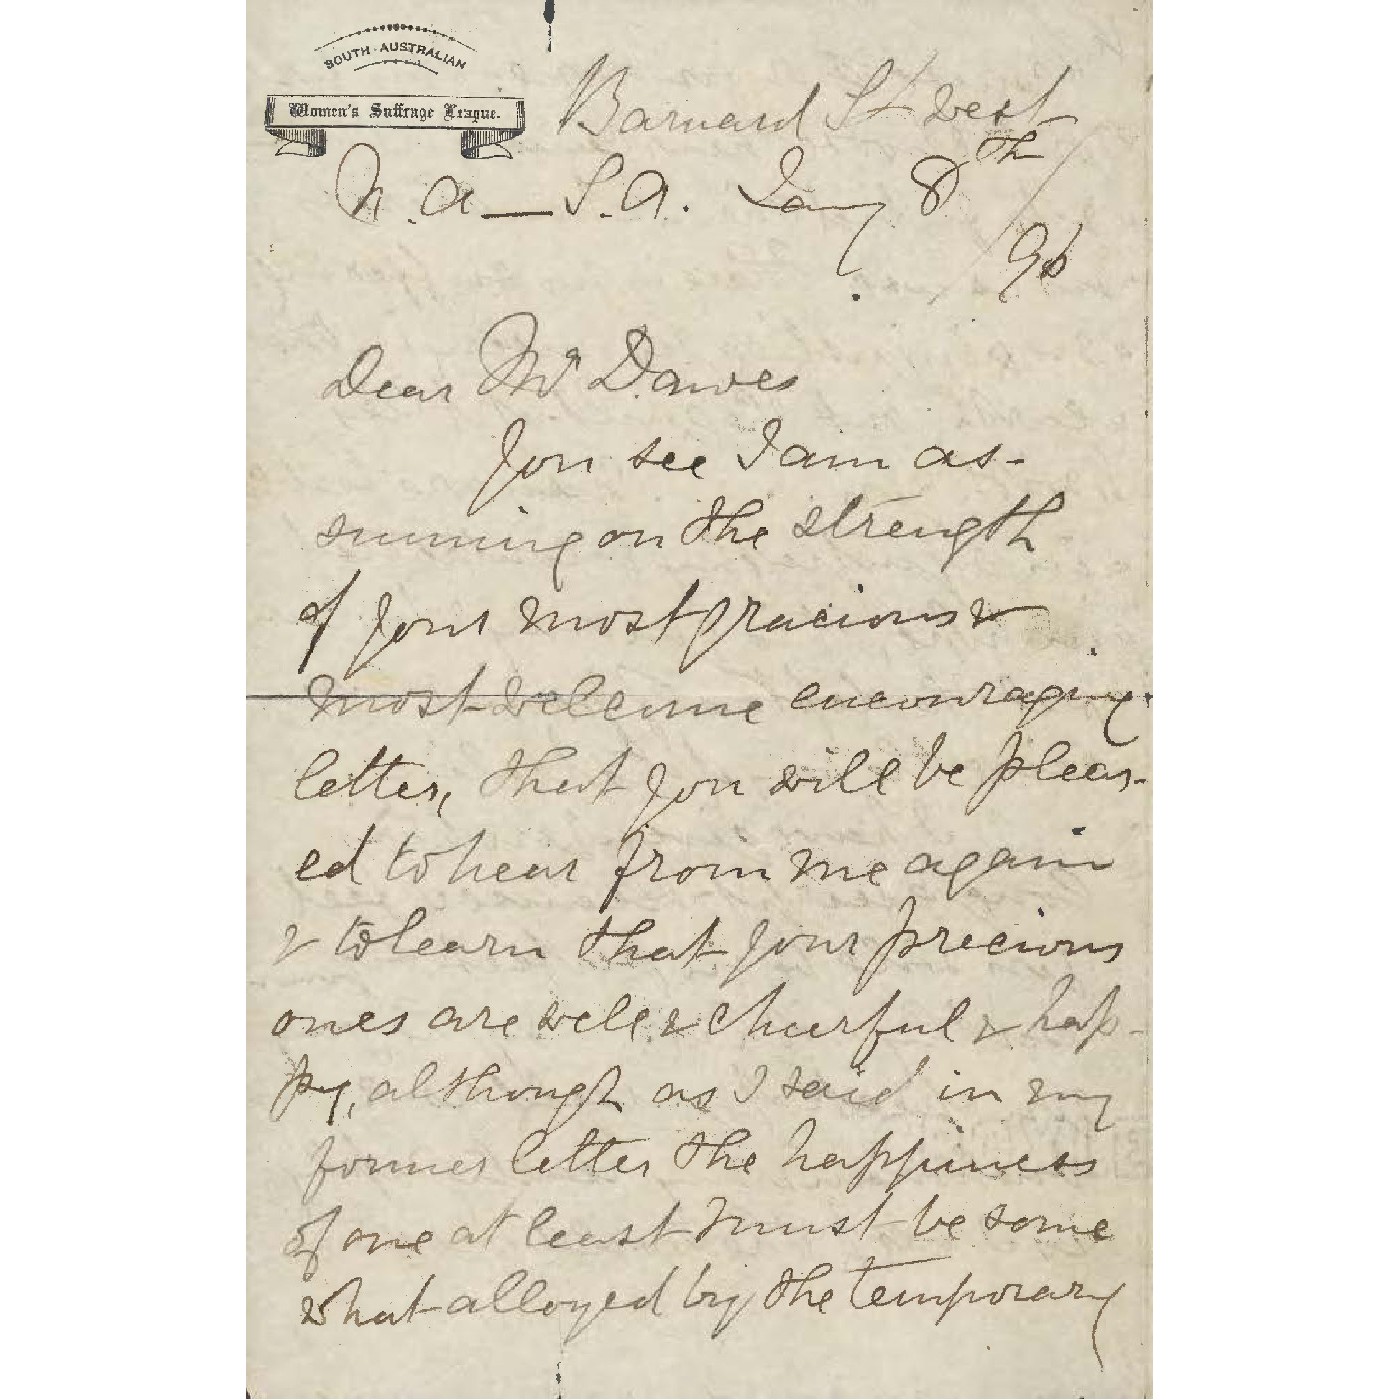 SOUTH · AUSTRALIAN
Women's Suffrage League.
Barnard St West
N.A — S.A. Jany 8th
/96
Dear Mr Dawes
You see I am as-
suming on the strength
of your most gracious &
most welcome encouraging
letter, that you will be pleas-
ed to hear from me again
& to learn that your precious
ones are well & cheerful & hap-
py, although as I said in my
former letter the happiness
of one at least must be some
what alloyed by the temporary